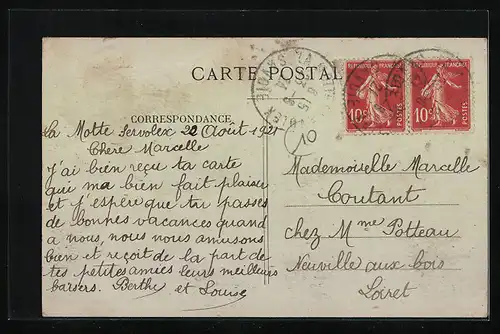 CARTE POSTALE
CORRESPONDANCE
La Motte Servolex 22 Août 1921
Chère Marcelle
J'ai bien reçu ta carte
qui ma bien fait plaisir
et j'espère que tu passes
de bonnes vacances quand
a nous, nous nous amusons
bien et reçoit de la part de
tes petites amies leurs meilleurs
baisers. Berthe et Louise
REPUBLIQUE FRANÇAISE
10c
POSTES
REPUBLIQUE FRANÇAISE
10c
POSTES
10
Mademoiselle Marcelle
Coutant
chez Mme Potteau
Neuville aux bois
Loiret